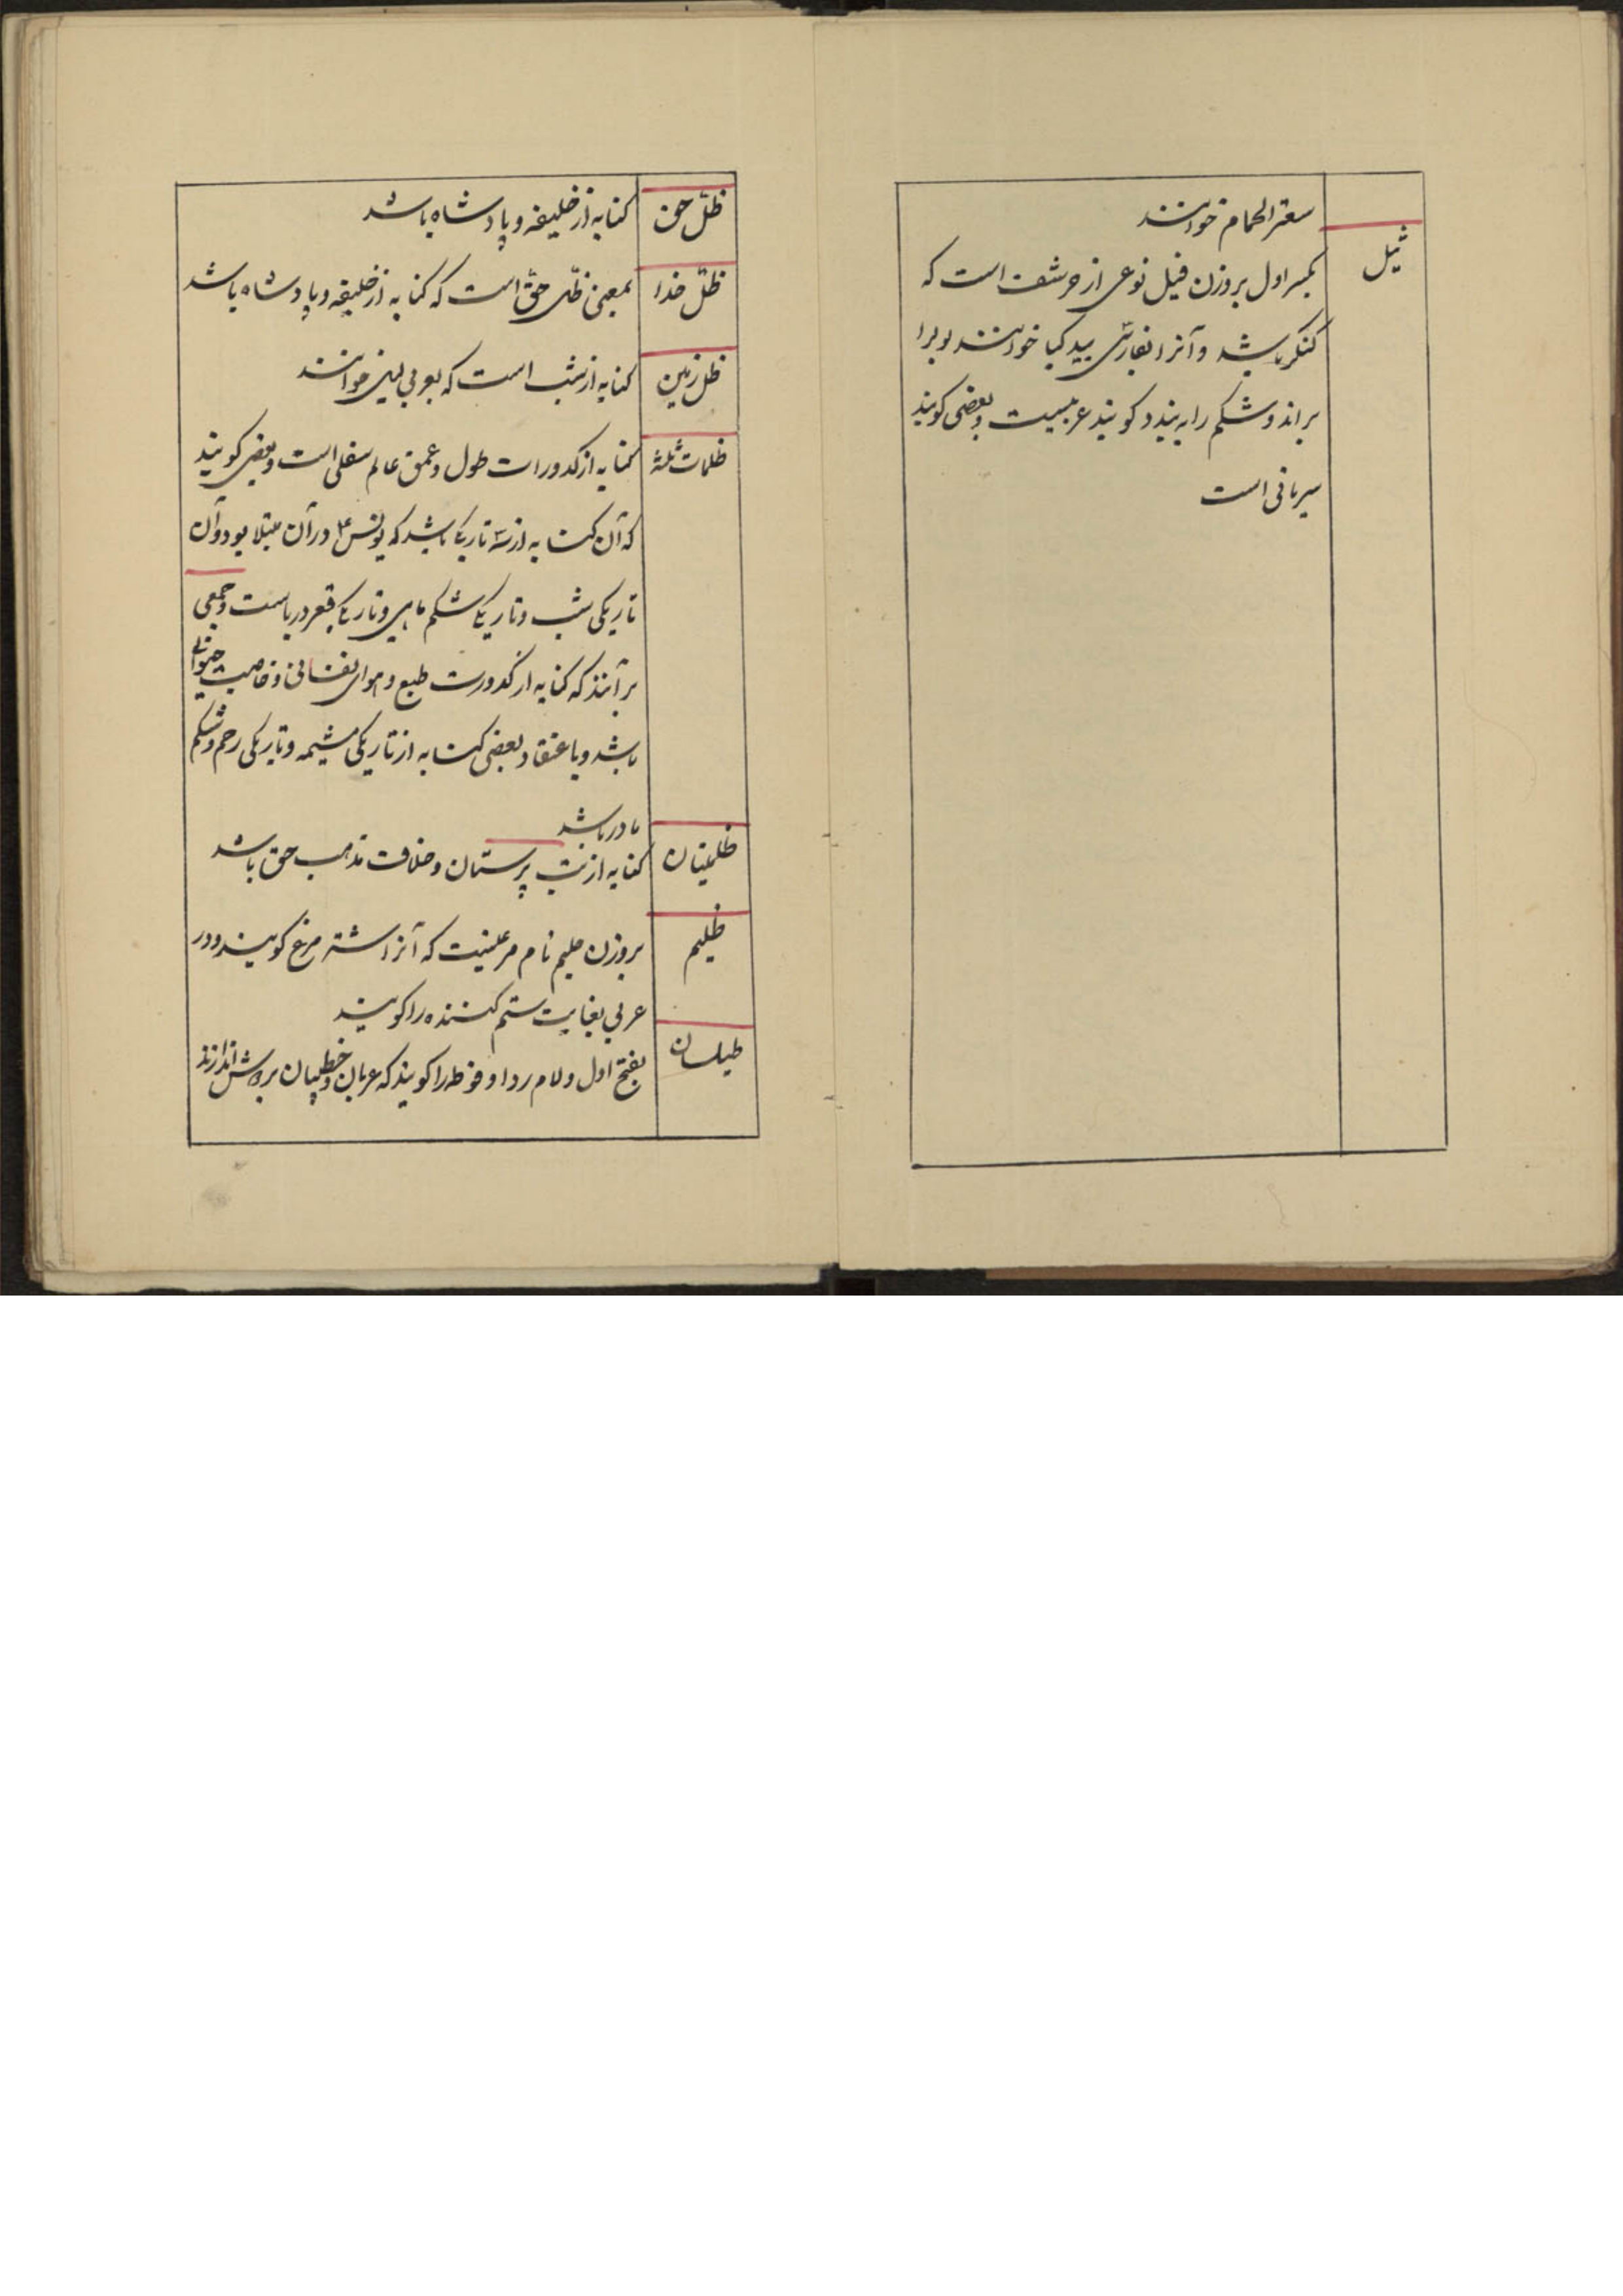 سعتر الحمام خوانند
ثیل
بکسر اول بروزن فیل نوعی از حرشف است که
کنکر باشد و آنرا بفارسی بید کیا خوانند بول را
براند و شکم را به بندد کویند عربیست و بعضی کویند
سریانی است
ظلّ حق
کنایه از خلیفه و پادشاه باشد
ظلّ خدا
بمعنی ظلّ حقّ است که کنایه از خلیفه و پادشاه باشد
ظل زمین
کنایه از شب است که بعربی لیل خوانند
ظلمات ثلثه
کنایه از کدورات طول و عمق عالم سفلی است و بعضی کویند
که آن کنایه از سه تاریکی باشد که یونس ع در آن مبتلا بود و آن
تاریکی شب و تاریکی شکم ماهی و تاریکی قعر دریاست و جمعی
برآنند که کنایه از کدورت طبع و هوای نفسانی و خاصیت حیوانی
باشد و باعتقاد بعضی کنایه از تاریکی مشیمه و تاریکی رحم و شکم
مادر باشد
ظلمتیان
کنایه از بت پرستان و خلاف مذهب حق باشد
ظلیم
بروزن حلیم نام مرغیست که آنرا اشتر مرغ کویند و در
عربی بغایت ستم کننده را کویند
طیلسان
بفتح اول و لام ردا و فوطه را کویند که عربان و خطیبان بر دوش اندازند